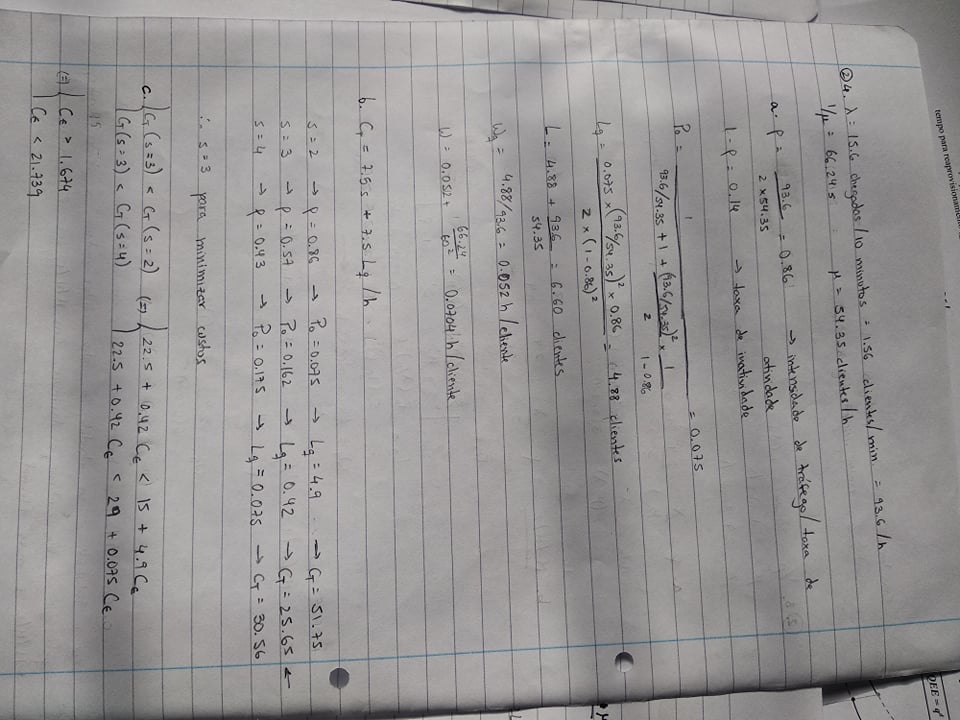 tempo para reaprovisionamen
QEE = q*
② 4. λ = 15.6 chegadas/10 minutos = 1.56 clientes/min. = 93.6/h
1/μ = 66.24 s μ = 54.35 clientes/h
a. ρ = 93.6 / 2 × 54.35 = 0.86 → intensidade de tráfego/taxa de
atividade
1 - ρ = 0.14 → taxa de inatividade
P₀ = 1 / 93.6/54.35 + 1 + (93.6/54.35)² / 2 × 1 / 1 - 0.86 = 0.075
Lq = 0.075 × (93.6/54.35)² × 0.86 / 2 × (1 - 0.86)² = 4.88 clientes
L = 4.88 + 93.6 / 54.35 = 6.60 clientes
Wq = 4.88/93.6 = 0.052 h/cliente
W = 0.052 + 66.24 / 60² = 0.0704 h/cliente
b. CT = 7.5 s + 7.5 Lq /h
s = 2 → ρ = 0.86 → P₀ = 0.075 → Lq = 4.9 → CT = 51.75
s = 3 → ρ = 0.57 → P₀ = 0.162 → Lq = 0.42 → CT = 25.65 ←
s = 4 → ρ = 0.43 → P₀ = 0.175 → Lq = 0.075 → CT = 30.56
∴ s = 3 para minimizar custos
c. { CT (s=3) < CT (s=2) (=) { 22.5 + 0.42 Cε < 15 + 4.9 Cε
CT (s=3) < CT (s=4) 22.5 + 0.42 Cε < 29 + 0.075 Cε
(=) { Cε > 1.674
Cε < 21.739